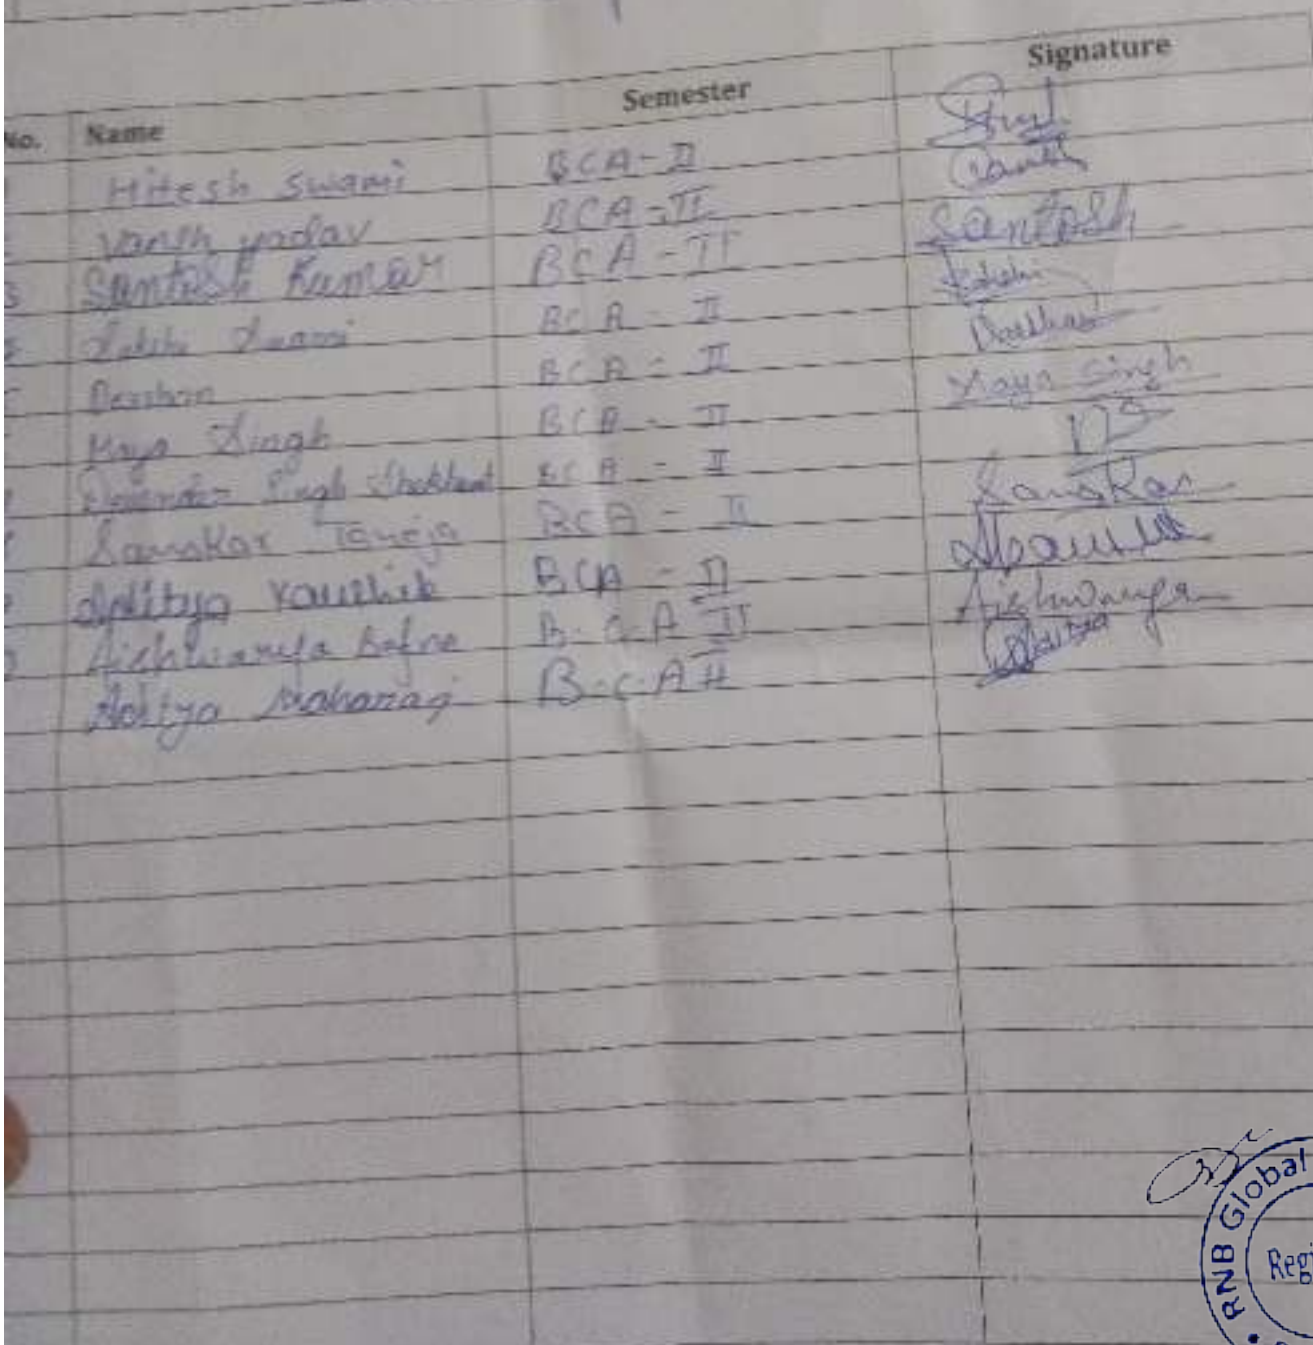 No. Name Semester Signature
Hitesh Swami BCA-II
Vansh yadav BCA-II
3 Santosh Kumar BCA-II Santosh
Swami BCA-II
Darshan BCA-II
Maya Singh BCA-II Maya Singh
Singh BCA-II
Sanskar Taneja BCA-II Sanskar
Aditya Kaushik BCA-II
Aishwarya Bafna B.C.A II Aishwarya
Aditya Maharaj B.C.A II
RNB Global
Regi